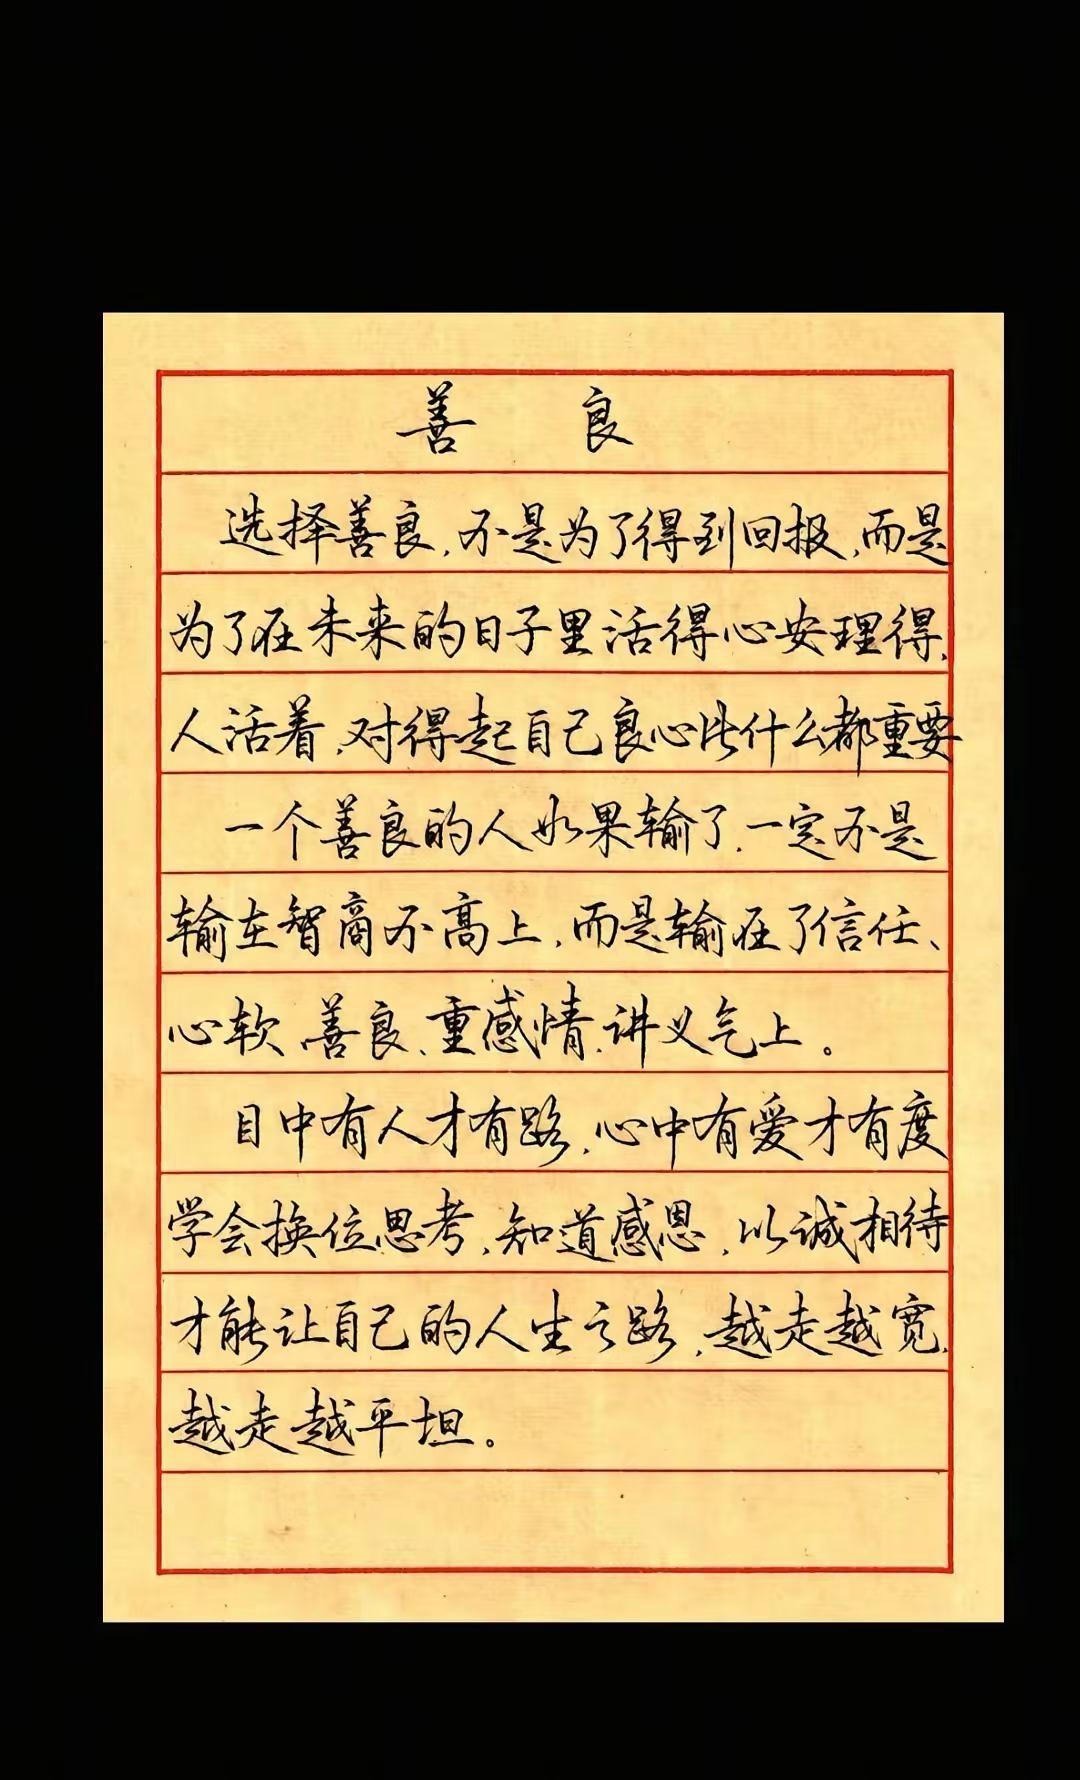 善 良
选择善良,不是为了得到回报,而是
为了在未来的日子里活得心安理得,
人活着,对得起自己良心比什么都重要
一个善良的人如果输了,一定不是
输在智商不高上,而是输在了信任、
心软、善良、重感情、讲义气上。
目中有人才有路,心中有爱才有度
学会换位思考,知道感恩,以诚相待
才能让自己的人生之路,越走越宽,
越走越平坦。